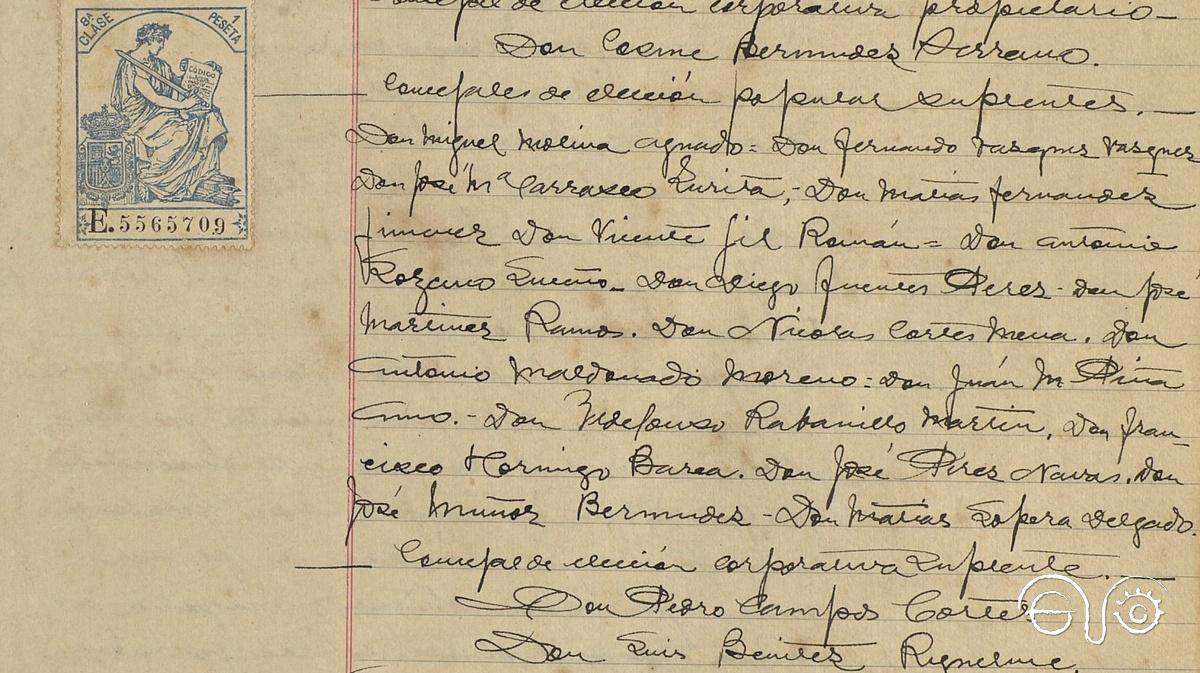 8ª CLASE
1 PESETA
CÓDIGO
E.5565709
Concejal de elección corporativa propietario—
Don Cosme Bermudez Serrano.
Concejales de elección popular suplentes.—
Don Miguel Molina Aguado= Don Fernando Vazquez Vazquez
Don José Mª Carrasco Zurita,- Don Matías Fernandez
Jimenez Don Vicente Gil Román= Don Antonio
Lozano Don Diego Fuentes Perez- Don José
Martinez Ramos. Don Nicolas Cortes Mena. Don
Antonio Maldonado Moreno= Don Juán M Piña
Don Ildefonso Rabanillo Martin, Don Fran-
cisco Hormigo Barea. Don José Perez Navas. Don
José Muñoz Bermudez- Don Matías Lopera Delgado.
Concejal de elección corporativa suplente.—
Don Pedro Campos Cortés
Don Luis Benitez Riquelme.